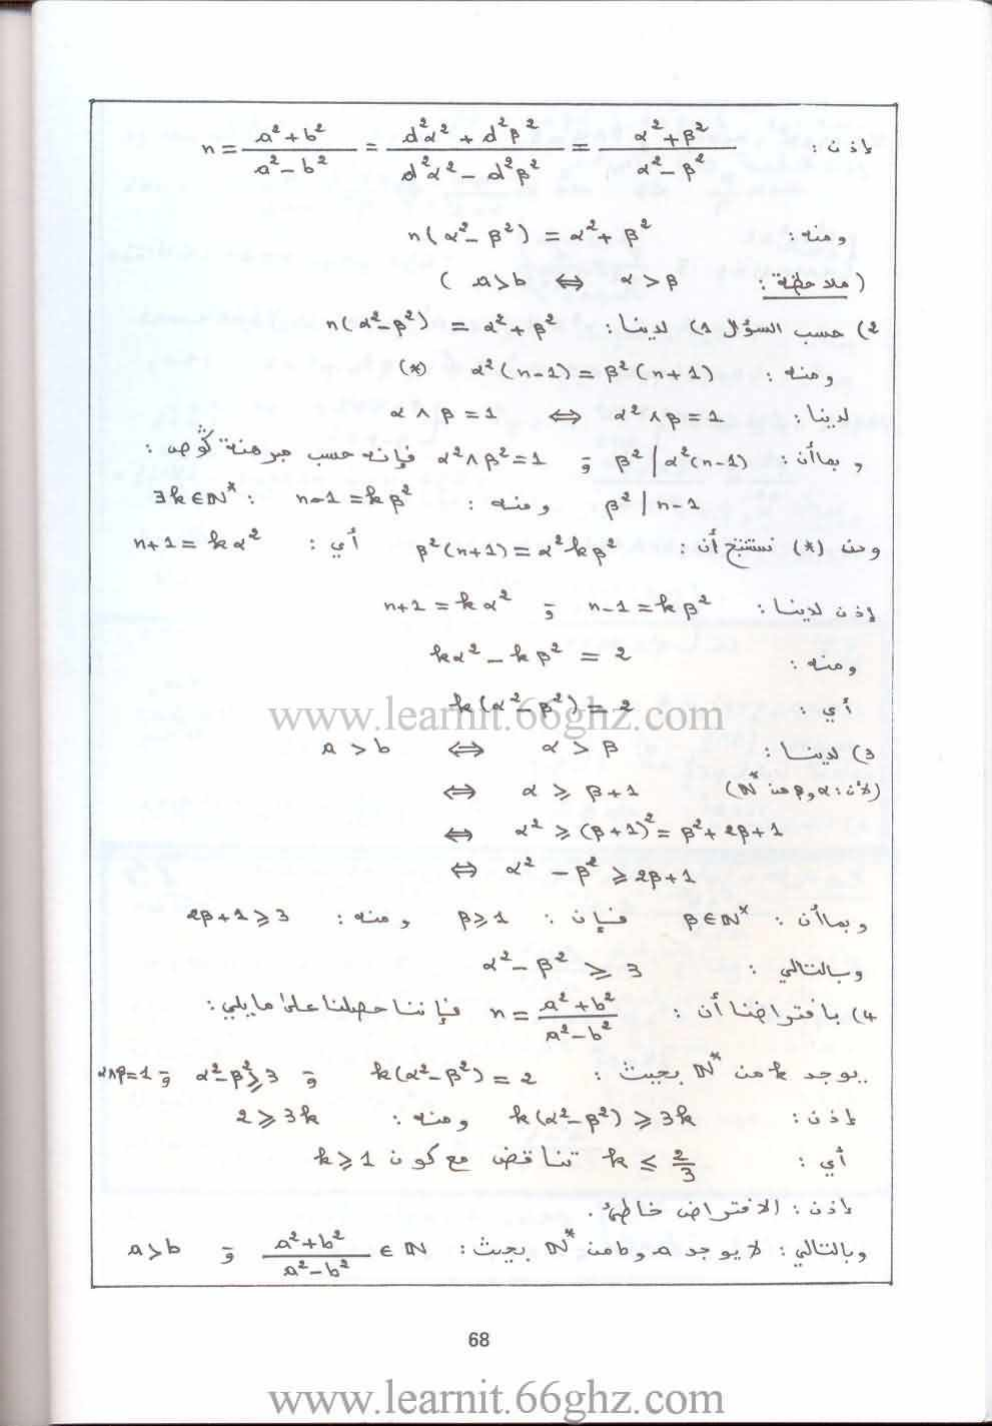 إذن : n = \frac{a²+b²}{a²-b²} = \frac{d²α²+d²β²}{d²α²-d²β²} = \frac{α²+β²}{α²-β²}
ومنه : n(α²-β²) = α²+β²
(ملاحظة : α>β ⇔ a>b )
2) حسب السؤال 1) لدينا : n(α²-β²) = α²+β²
ومنه : α²(n-1) = β²(n+1) (*)
لدينا : α²∧β=1 ⇔ α∧β=1
وبما أن : β² | α²(n-1) و α²∧β²=1 فإنه حسب مبرهنة گوص :
β² | n-1 ومنه : n-1 = kβ² : ∃k∈ℕ*
ومن (*) نستنتج أن : β²(n+1) = α²kβ² أي : n+1 = kα²
إذن لدينا : n-1 = kβ² و n+1 = kα²
ومنه : kα² - kβ² = 2
أي : k(α²-β²) = 2
www.learnit.66ghz.com
3) لدينا : α > β ⇔ a > b
(لأن : α و β من ℕ*) α ⩾ β+1 ⇔
α² ⩾ (β+1)² = β²+2β+1 ⇔
α² - β² ⩾ 2β+1 ⇔
وبما أن : β∈ℕ* فإن : β⩾1 ومنه : 2β+1⩾3
وبالتالي : α²-β² ⩾ 3
4) بافتراضنا أن : n = \frac{a²+b²}{a²-b²} فإننا حصلنا على ما يلي :
يوجد k من ℕ* بحيث : k(α²-β²) = 2 و α²-β²⩾3 و α∧β=1
إذن : k(α²-β²) ⩾ 3k ومنه : 2⩾3k
أي : k ⩽ \frac{2}{3} تناقض مع كون k⩾1
إذن : الافتراض خاطئ .
وبالتالي : لا يوجد a و b من ℕ* بحيث : \frac{a²+b²}{a²-b²} ∈ ℕ و a>b
68
www.learnit.66ghz.com